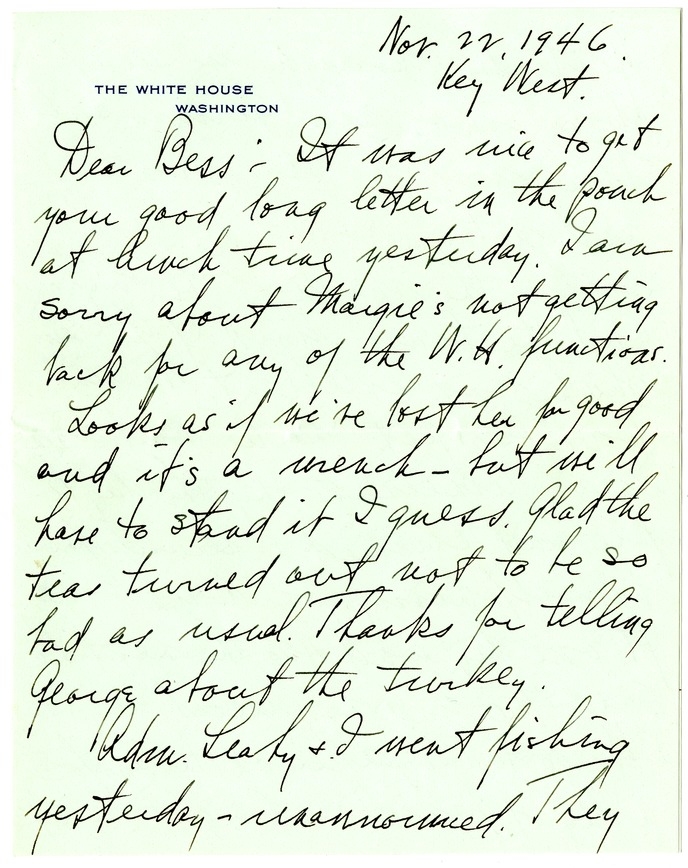 Nov. 22, 1946.
Key West.
THE WHITE HOUSE
WASHINGTON
Dear Bess:- It was nice to get
your good long letter in the pouch
at lunch time yesterday. I am
sorry about Margie's not getting
back for any of the W.H. functions.
Looks as if we've lost her for good
and it's a wrench - but we'll
have to stand it I guess. Glad the
teas turned out not to be so
bad as usual. Thanks for telling
George about the turkey.
Adm. Leahy & I went fishing
yesterday - unannounced. They